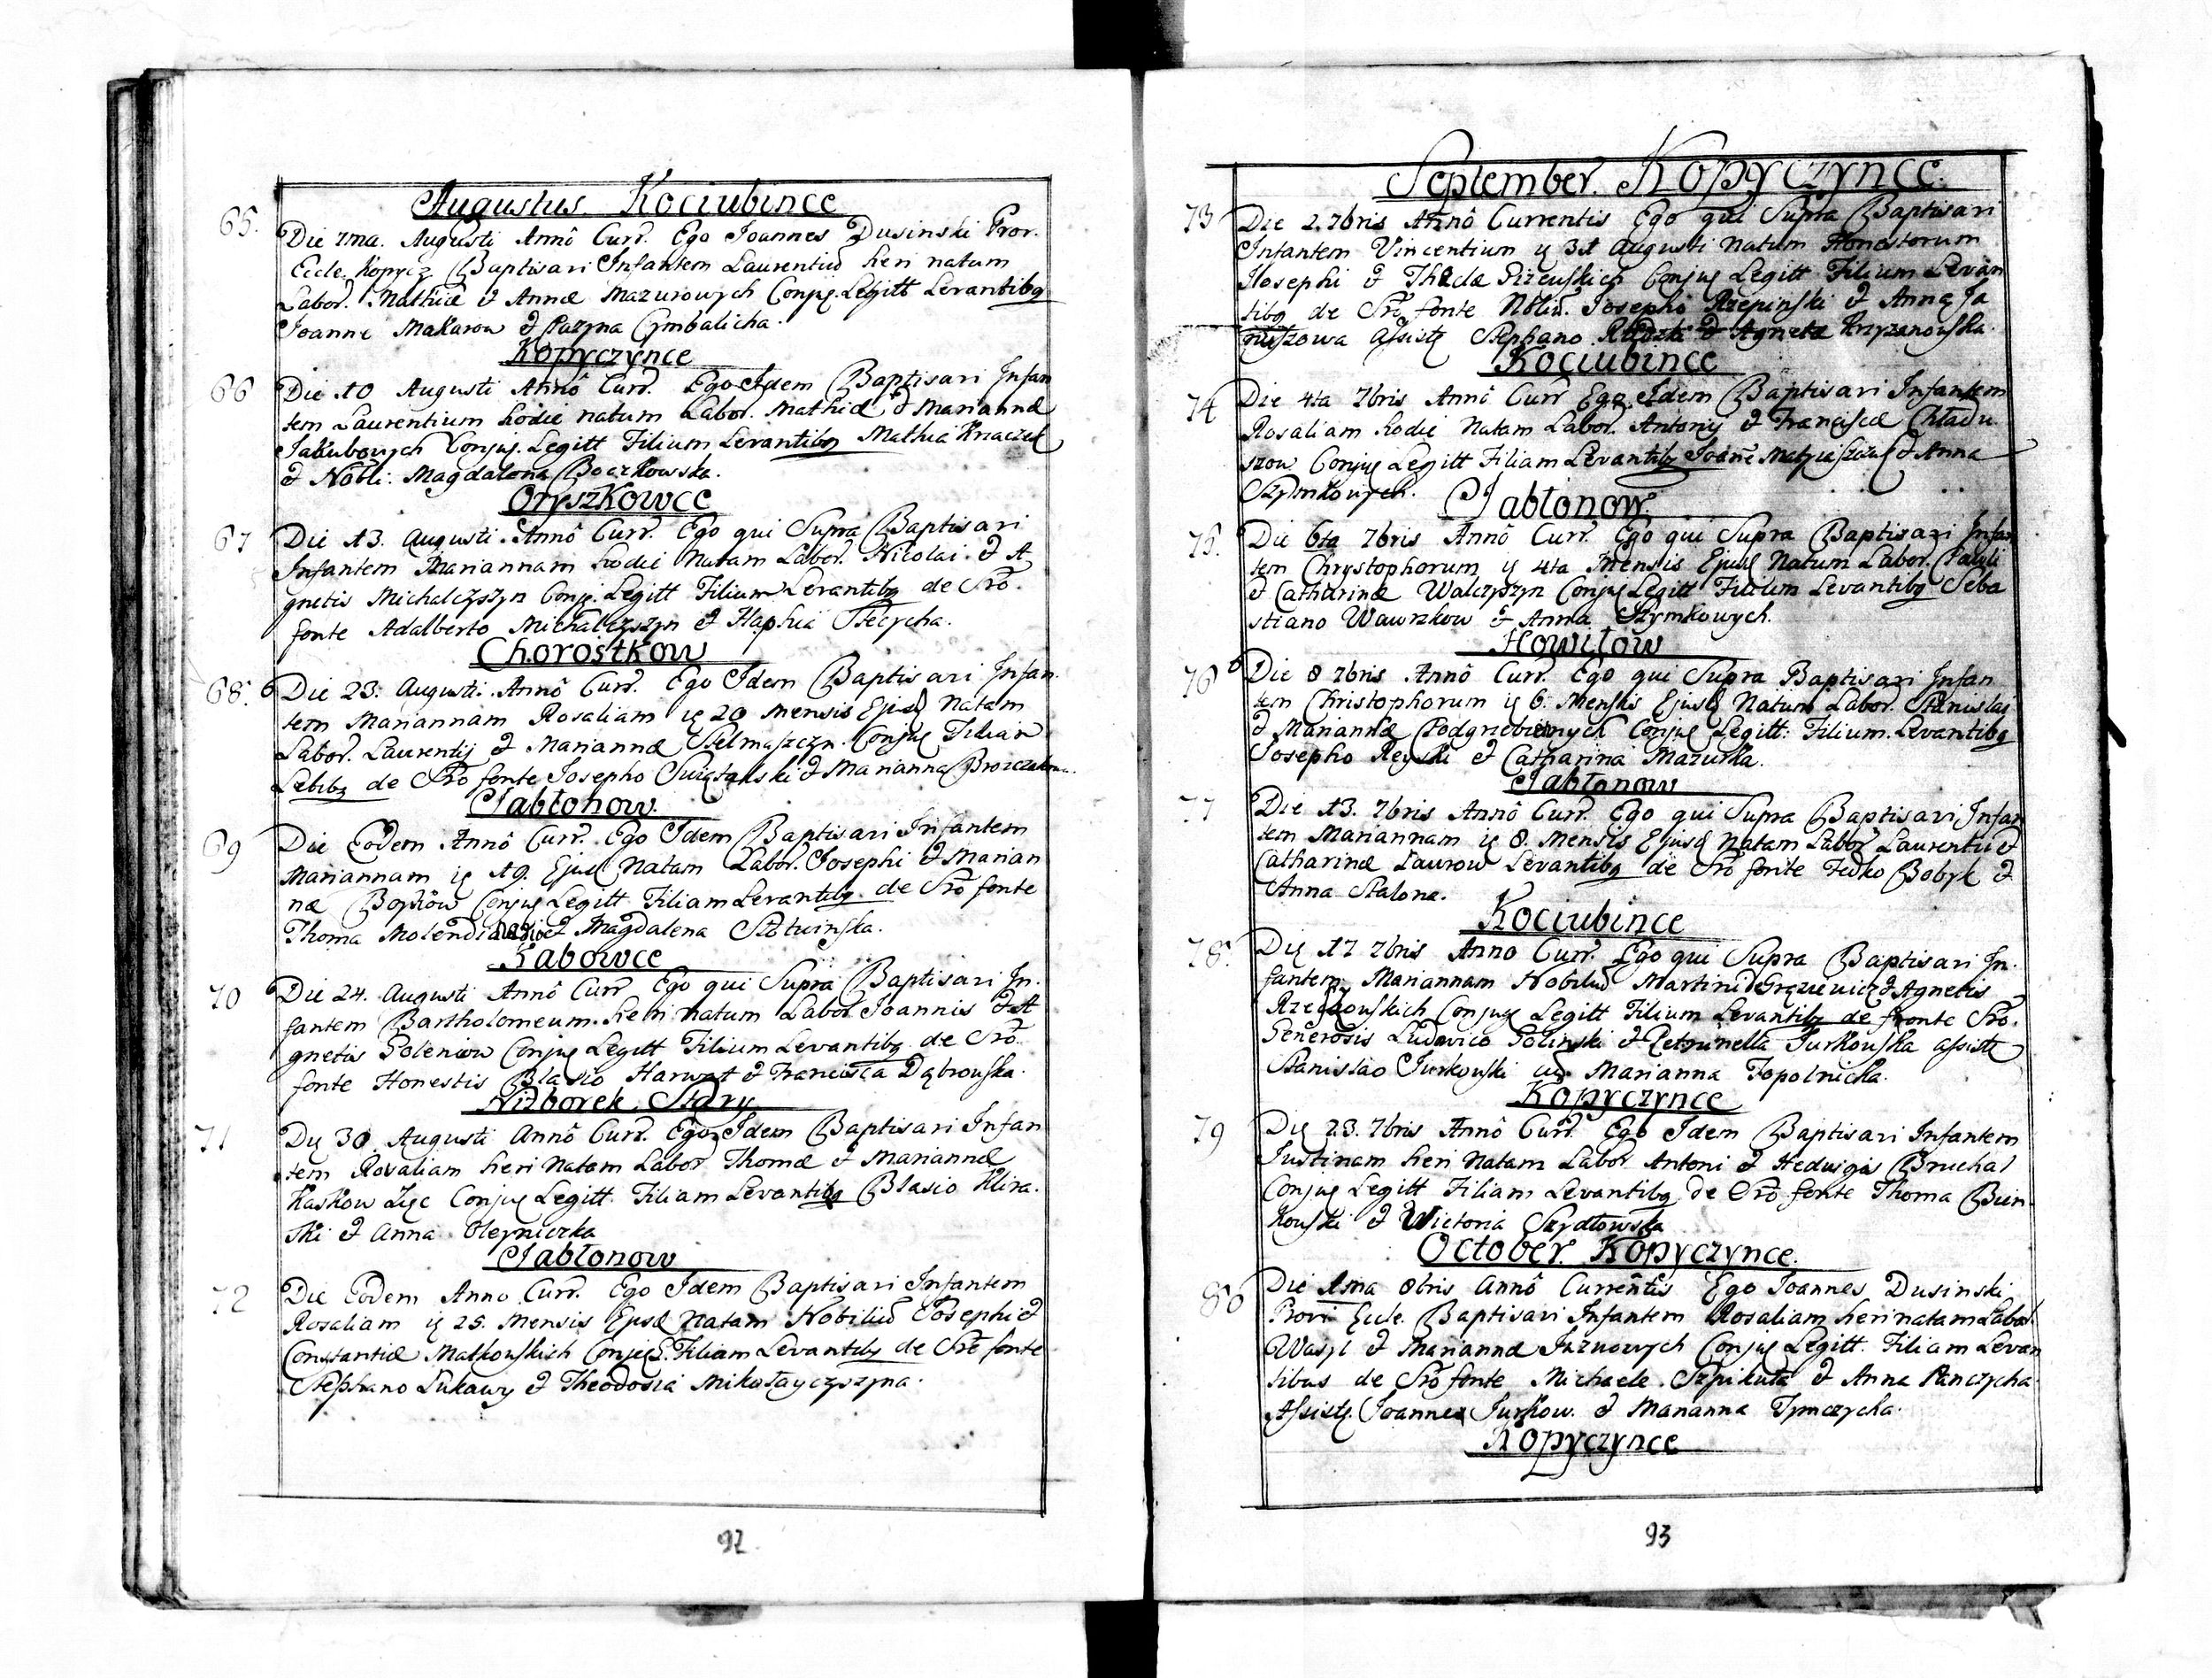 Augustus Kociubince
65. Die 7ma. Augusti Annô Curr. Ego Joannes Dusinski Pror.
Eccle. Kopycz Baptisavi Infantem Laurentiū heri natum
Labor. Mathiæ & Annæ Mazurowych Conjug. Legitt Levantibq
Joanne Makarow & Pazyna Cymbalicha.
Kopyczynce
66 Die 10 Augusti Annô Curr. Ego Idem Baptisavi Infan
tem Laurentium hodie natum Labor. Mathiæ & Mariannæ
Jakubowych Conjug. Legitt Filium Levantibq Mathia Knaczek
& Nobli: Magdalena Boczkowska.
Oryszkowce
67 Die 13. Augusti. Annô Curr. Ego qui Supra Baptisavi
Infantem Mariannam hodie Natam Labor. Nicolai. & A
gnetis Michalczyszyn Conj. Legitt Filium Levantibq de Srô.
fonte Adalberto Michalczyszyn & Haphia
Chorostkow
68. Die 23. Augusti. Annô Curr. Ego Idem Baptisavi Infan
tem Mariannam Rosaliam ię 20 Mensis Ejusd Natam
Labor. Laurentij & Mariannæ Stelmaszczn. Conjug Filiam
de Srô fonte Josepho & Marianna
Jabłonow.
69 Die Eodem Annô Curr. Ego Idem Baptisavi Infantem
Mariannam ię 19. Ejusd Natam Labor. Josephi & Marian
næ Conjug Legitt Filiam Levantibq. de Srô fonte
Thoma & Magdalena Słotwinska.
Łabowce
70 Die 24. Augusti Annô Curr Ego qui Supra Baptisavi In.
fantem Bartholomeum. heri natum Labor Joannis & A
gnetis Goleniow Conjug Legitt Filium Levantibq de Srô
fonte Honestis Blasio Harwat & Francisca Dąbrowska.
Niżborek Stary
71 Die 30. Augusti Annô Curr. Ego Idem Baptisavi Infan
tem Rosaliam heri Natam Labor Thomæ & Mariannæ
Kaskow Conjug Legitt. Filiam Levantibq Blasio Klira.
& Anna Oleyniczka
Jabłonow
72 Die Eodem Anno Curr. Ego Idem Baptisavi Infantem
Rosaliam ię 25. Mensis Ejusd Natam Nobiliū Josephi &
Constantiæ Małkowskich Conjug. Filiam Levantibq de Srô fonte
Stephano Łukawy & Theodosia Mikołayczyszyna.
92
September. Kopyczynce.
73 Die 2. 7bris Annô Currentis Ego qui Supra Baptisavi
Infantem Vincentium ię 31 Augusti Natum Honestorum
Josephi & Conjug Legitt Filium Levan
tibq de Srô fonte Nobliū. Josepho Rzepinski & Anna Ja
nuszowa Assistę Stephano & Agneta Krzyzanowska.
Kociubince
74 Die 4ta 7bris Annô Curr Ego Idem Baptisavi Infantem
Rosaliam hodie Natam Labor. Antonij & Franciscæ Chladu
szow Conjug Legitt Filiam Levantibq & Anna
Szymkowych.
Jabłonow.
75. Die 6ta 7bris Annô Curr. Ego qui Supra Baptisavi Infan
tem Chrystophorum ię 4ta Mensis Ejusd Natum Labor. Pauli
& Catharinæ Walczyszyn Conjug Legitt Filium Levantibq Seba
stiano Wawrzkow & Anna Szymkowych.
Howiłow
76 Die 8 7bris Annô Curr. Ego qui Supra Baptisavi Infan
tem Christophorum ię 6. Mensis Ejusd Natum Labor. Stanislai
& Mariannæ Conjug Legitt: Filium. Levantibq
Josepho Reyski & Catharina Mazurka.
Jabłonow
77 Die 13. 7bris Annô Curr. Ego qui Supra Baptisavi Infan
tem Mariannam ię 8. Mensis Ejusd Natam Labor Laurentii &
Catharinæ Laurow Levantibq de Srô fonte Fedko Bobyk &
Anna Stalona.
Kociubince
78. Die 17 7bris Anno Curr. Ego qui Supra Baptisavi In.
fantem Mariannam Nobiliū Martini & Agnetis
Conjug Legitt Filium Levantibq de fronte Srô.
Generosis Ludovico Golinski & Petrunella Jurkowska assistę
Stanislao Jurkowski Marianna Topolnicka.
Kopyczynce
79 Die 23. 7bris Annô Curr. Ego Idem Baptisavi Infantem
Justinam heri Natam Labor Antoni & Hedvigis Bruchal
Conjug Legitt Filiam Levantibq de Srô fonte Thoma Bien
kowski & Wictoria Szydłowska
October. Kopyczynce.
80 Die 1ma 8bris Annô Currentis Ego Joannes Dusinski
Prori Eccle. Baptisavi Infantem Rosaliam heri natam Labor.
Wasyl & Mariannæ Conjug Legitt. Filiam Levan
tibus de Srô fonte Michaele. Szpikuła & Anna Panczycha
Assistę. Joannes Jurkow. & Marianna Tymczycha.
Kopyczynce
93